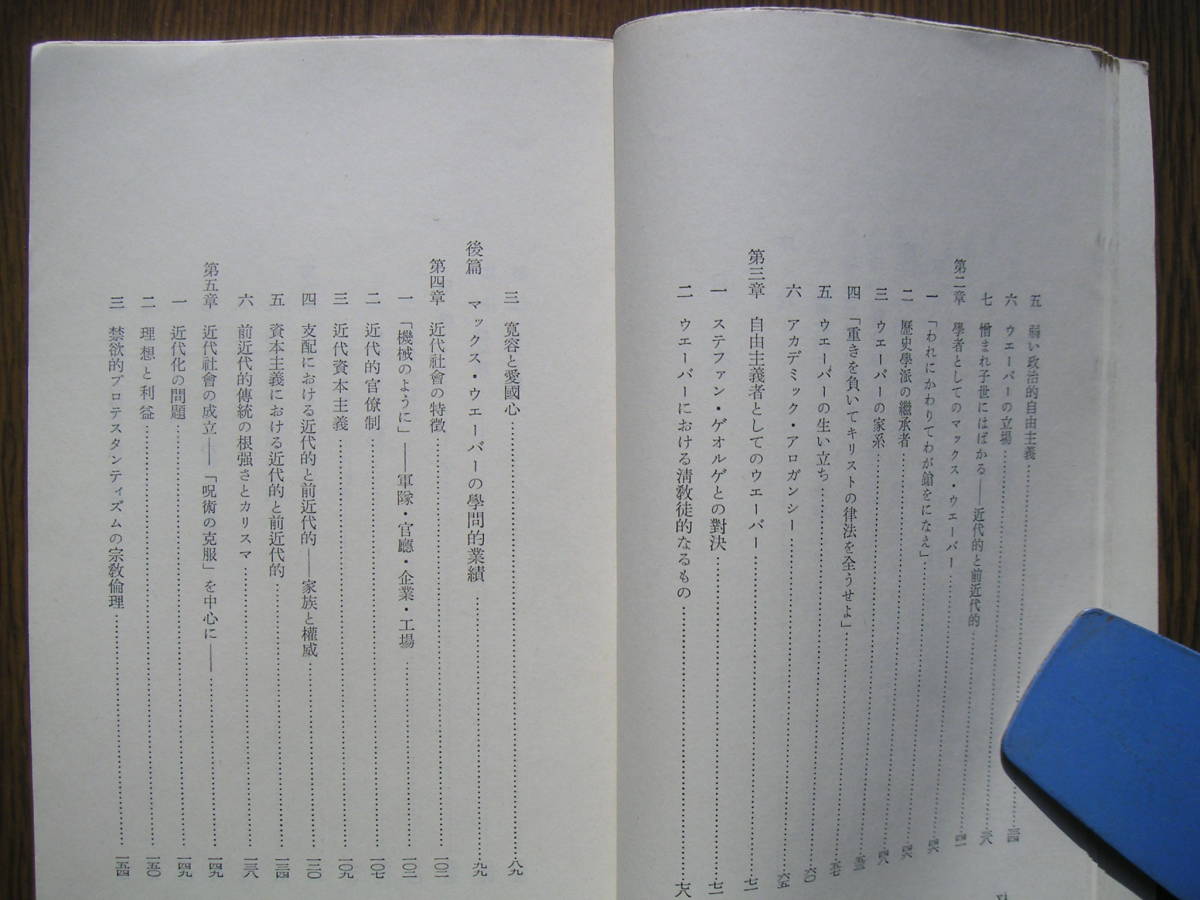 五 弱い政治的自由主義
六 ウエーバーの立場……三四
七 憎まれ子世にはばかる——近代的と前近代的……三八
第二章 學者としてのマックス・ウエーバー……四一
一 「われにかわりてわが鎗をになえ」……四六
二 歴史學派の繼承者……四六
三 ウエーバーの家系……四八
四 「重きを負いてキリストの律法を全うせよ」……五三
五 ウエーバーの生い立ち……五七
六 アカデミック・アロガンシー……六〇
第三章 自由主義者としてのウエーバー……六五
一 ステファン・ゲオルゲとの對決……七一
二 ウエーバーにおける淸敎徒的なるもの……七八
三 寬容と愛國心……八九
後篇 マックス・ウエーバーの學問的業績……九九
第四章 近代社會の特徴……一〇二
一 「機械のように」——軍隊・官廳・企業・工場……一〇二
二 近代的官僚制……一〇七
三 近代資本主義……一〇九
四 支配における近代的と前近代的——家族と權威……一二〇
五 資本主義における近代的と前近代的……一三四
六 前近代的傳統の根强さとカリスマ……一三八
第五章 近代社會の成立——「呪術の克服」を中心に——……一四九
一 近代化の問題……一四九
二 理想と利益……一五〇
三 禁欲的プロテスタンティズムの宗敎倫理……一五四